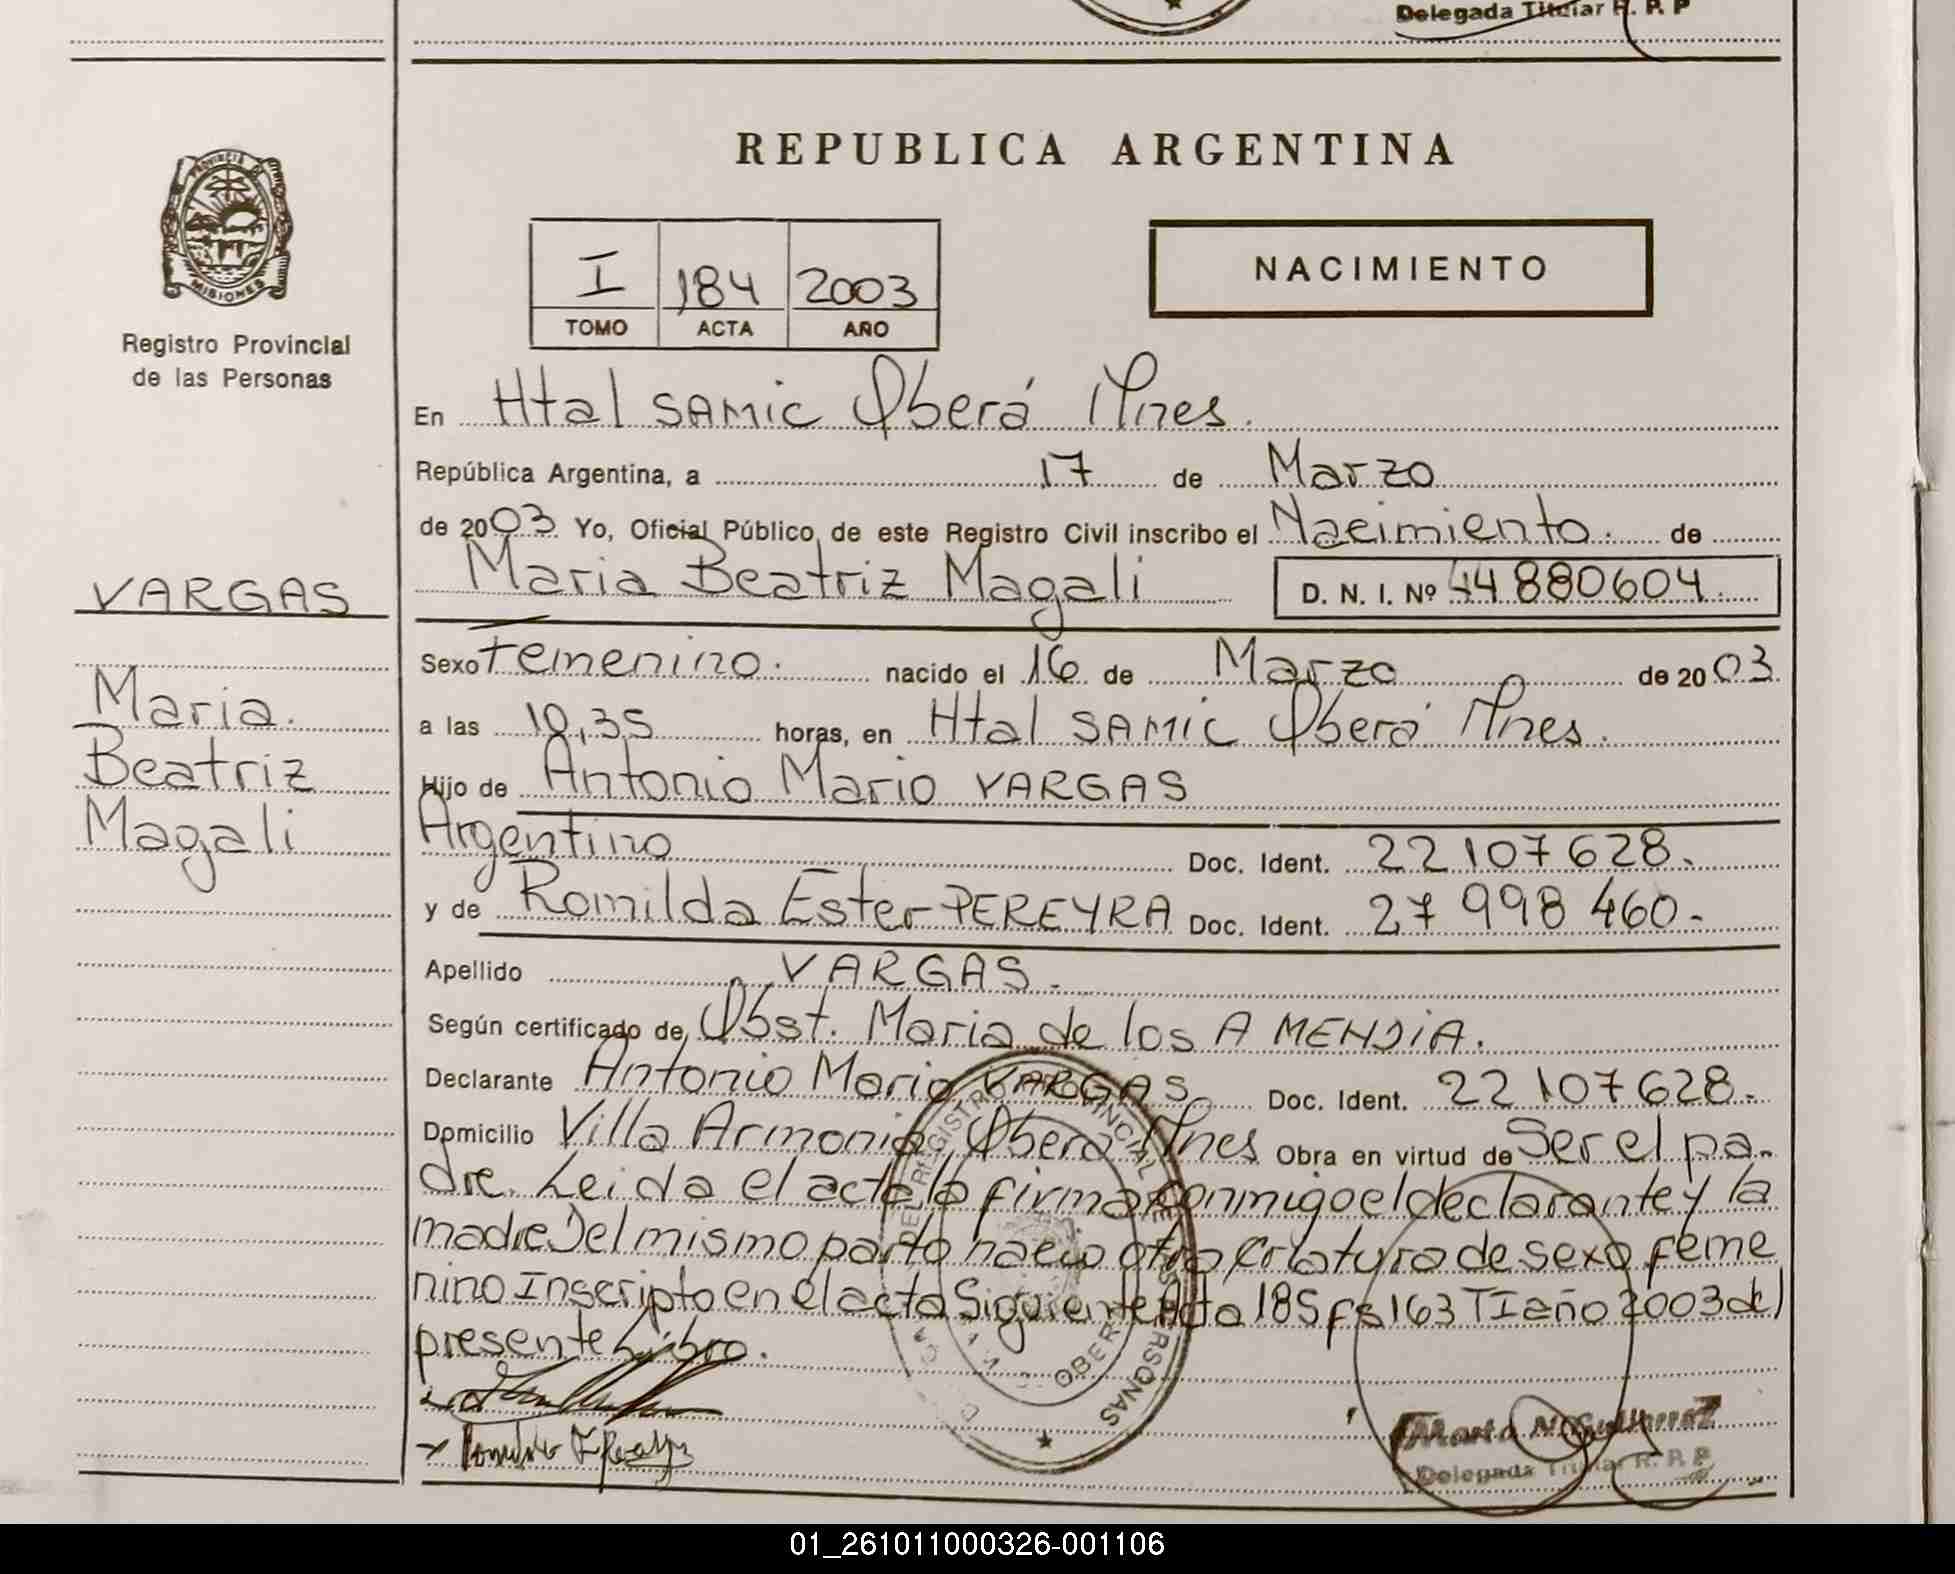 Delegada Titular R. P. P
REPUBLICA ARGENTINA
PROVINCIA DE MISIONES
Registro Provincial
de las Personas
I 184 2003
TOMO ACTA AÑO
NACIMIENTO
En Htal SAMIC Oberá Mnes.
República Argentina, a 17 de Marzo
de 2003 Yo, Oficial Público de este Registro Civil inscribo el Nacimiento. de
Maria Beatriz Magali D. N. I. Nº 44 880604
VARGAS
Maria.
Beatriz
Magali
Sexo Femenino. nacido el 16 de Marzo de 2003
a las 10,35 horas, en Htal SAMIC Oberá Mnes.
Hijo de Antonio Mario VARGAS
Argentino Doc. Ident. 22 107 628.
y de Romilda Ester PEREYRA Doc. Ident. 27 998 460.
Apellido VARGAS.
Según certificado de Obst. Maria de los A MENDIA.
Declarante Antonio Mario VARGAS Doc. Ident. 22 107 628.
Domicilio Villa Armonia Obera Mnes Obra en virtud de Ser el pa-
dre. Leida el acta la firma conmigo el declarante y la
madre Del mismo parto nacio otra criatura de sexo feme
nino Inscripto en el acta Siguiente Acta 185 fs 163 TI año 2003 del
presente Libro.
REGISTRO PROVINCIAL DE LAS PERSONAS
OBERA
Marta N. Gutierrez
Delegada Titular R. P. P
01_261011000326-001106